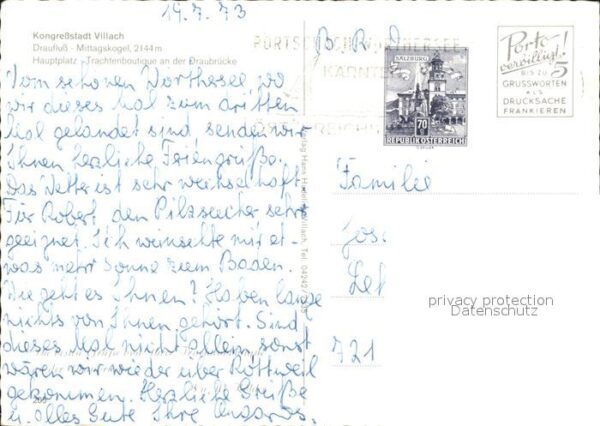 19.7.73
Kongreßstadt Villach
Draufluß - Mittagskogel, 2144 m
Hauptplatz - Trachtenboutique an der Draubrücke
B R D
KÄRNTEN
SALZBURG
70 g
REPUBLIK ÖSTERREICH
Porto
verbilligt!
BIS ZU 5
GRUSSWORTEN
ALS
DRUCKSACHE
FRANKIEREN
Vom schönen Wörthersee wo
wir dieses Mal zum dritten
Mal gelandet sind senden wir
Ihnen herzliche Feriengrüße.
Das Wetter ist sehr wechselhaft.
Für Robert den Pilzsucher sehr
geeignet. Ich wünschte mir et-
was mehr Sonne zum Baden.
Wie geht es Ihnen? Haben lange
nichts von Ihnen gehört. Sind
dieses Mal nicht allein, sonst
wären wir wieder über Rottweil
gekommen. Herzliche Grüße
u. alles Gute Ihre
Familie
721
privacy protection
Datenschutz